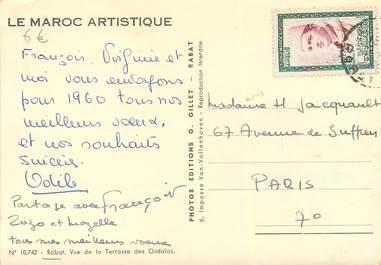 LE MAROC ARTISTIQUE
6€
François, Virginie et
moi vous envoyons
pour 1960 tous nos
meilleurs vœux,
et nos souhaits
succès.
Odile
Partage avec François
Zozo et
tous mes meilleurs vœux
N° 10.742 - Rabat. Vue de la Terrasse des Oudaïas.
PHOTOS EDITIONS G. GILLET - RABAT
6, Impasse Van-Vollenhoven - Reproduction Interdite
Madame H Jacquault
67 Avenue de Suffren
PARIS
7o